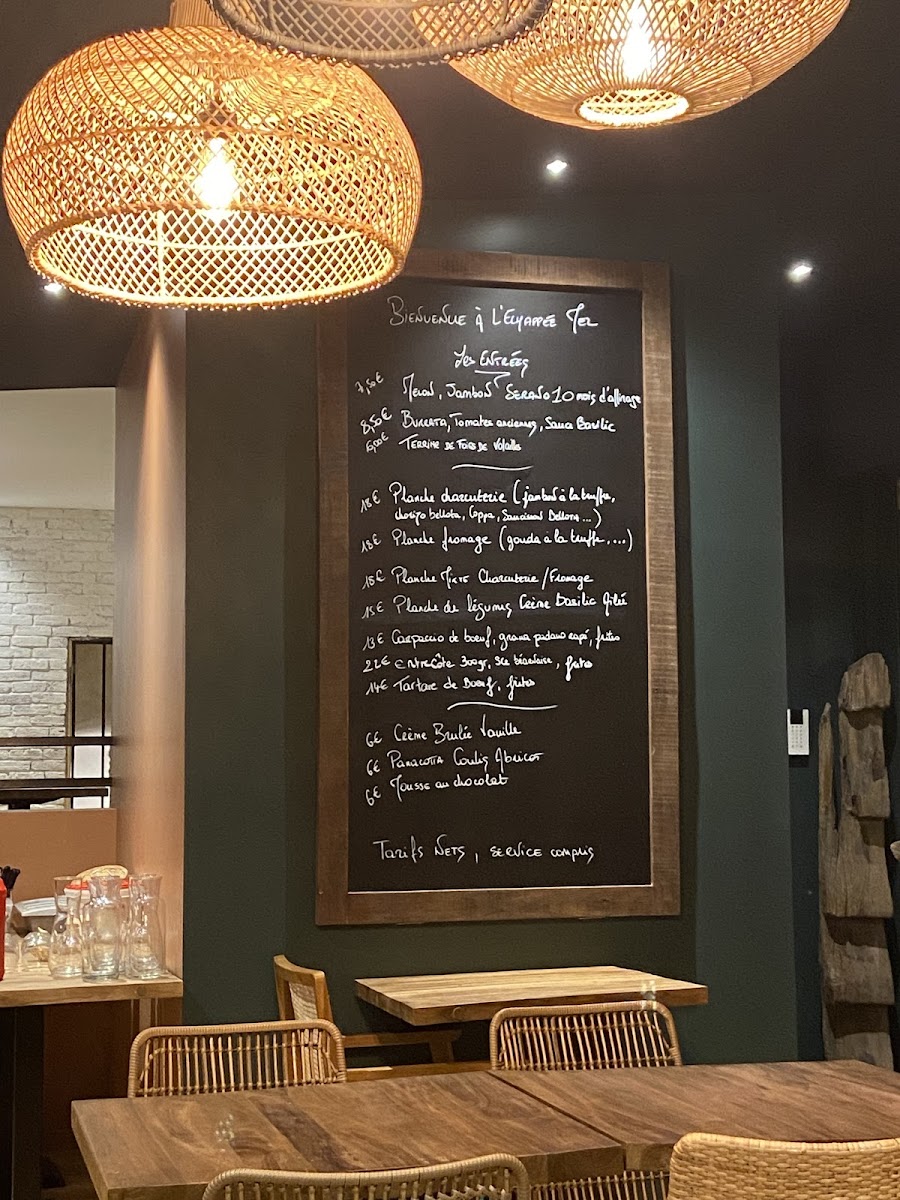 BIENVENUE à L'ECHAPPÉE MER
Les ENTRÉES
7,50€ MELON, JAMBON SERANO 10 MOIS d'affinage
8,50€ BURRATA, Tomates anciennes, Sauce Basilic
TERRINE DE FOIES DE Volailles
18€ Planche charcuterie (jambon à la truffe,
chorizo bellota, Coppa, Saucisson Bellota ...)
18€ Planche fromage (gouda a la truffe, ...)
18€ Planche Mixte Charcuterie/Fromage
15€ Planche de légumes Crème basilic
13€ Carpaccio de boeuf, grana padano capé, frites
22€ ENTRECÔTE 300gr, Sce béarnaise, frites
14€ Tartare de Boeuf, frites
6€ Crème Brulée Vanille
6€ PANACOTTA Coulis Abricot
6€ Mousse au chocolat
Tarifs NETS, SERVICE COMPRIS